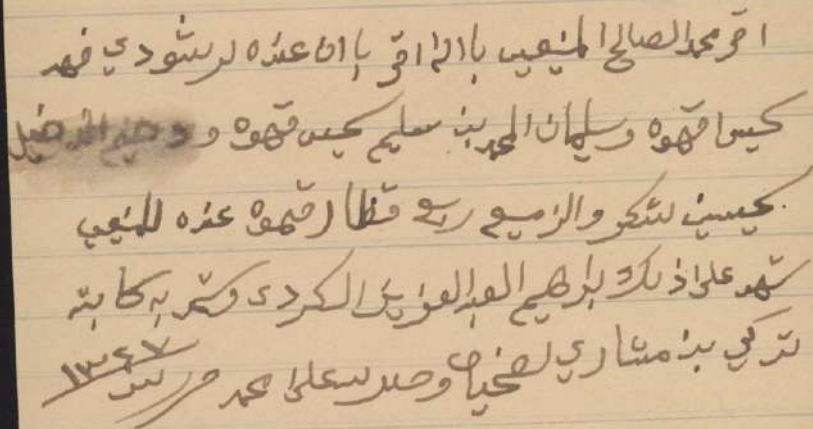 اقر محمد الصالح المنيعي بااله اقر باان عنده لرشودي فهد
كيس قهوه وسليمان المحمد بن سليم كيس قهوه و دخيل
كيسين سكر والزميع ربع قنطار قهوه عنده للمنيعي
شهد على ذلك ابراهيم العبد العزيز الكردي وشهد به كاتبه
تركي بن مشاري وصلى الله على محمد وسلم ١٣٤٧